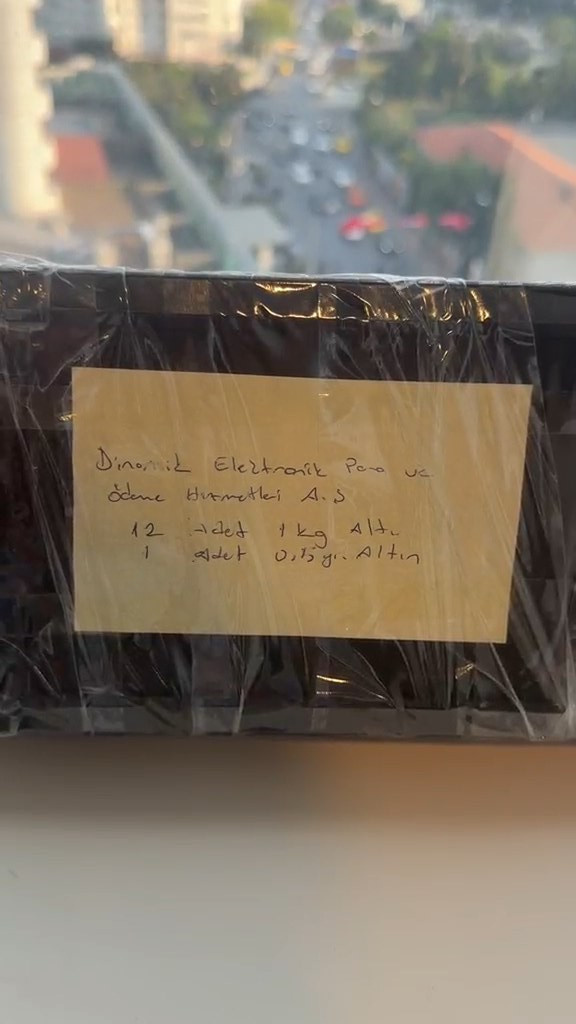 Dinamik Elektronik Para ve
Ödeme Hizmetleri A.Ş
12 Adet 1 kg Altı
1 Adet gr. Altın